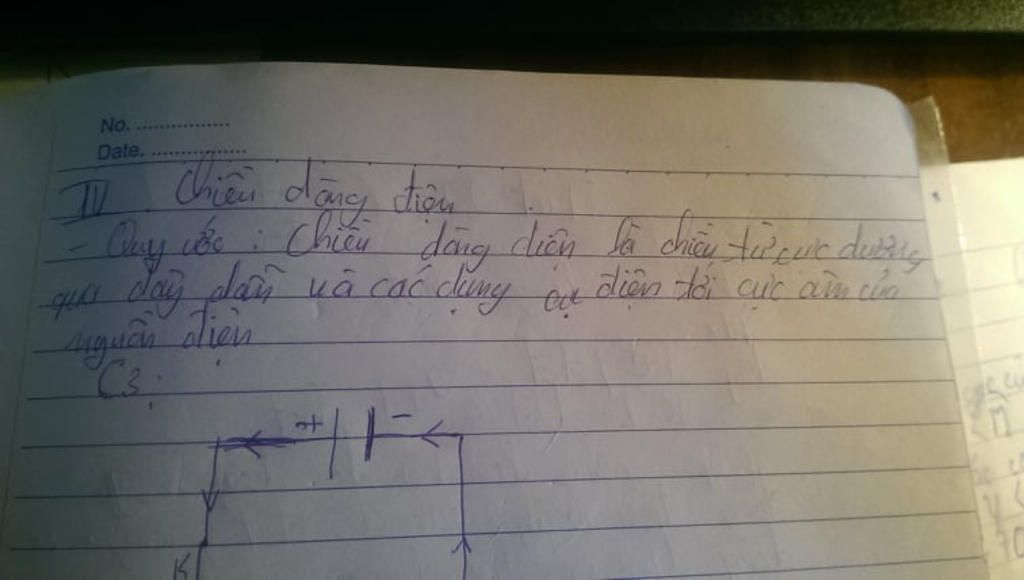 No. ................
Date. ................
IV. Chiều dòng điện
- Quy ước : Chiều dòng điện là chiều từ cực dương
qua dây dẫn và các dụng cụ điện tới cực âm của
nguồn điện
C3:
+ -
K